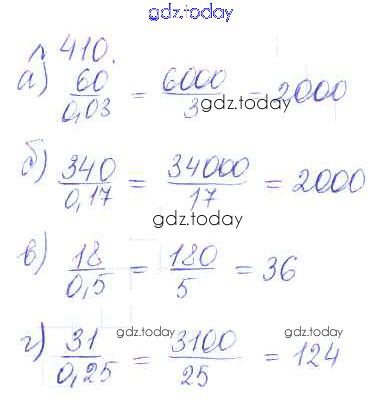 gdz.today
№ 410.
а) 60/0,03 = 6000/3 = 2000
gdz.today
б) 340/0,17 = 34000/17 = 2000
gdz.today
в) 18/0,5 = 180/5 = 36
gdz.today gdz.today
г) 31/0,25 = 3100/25 = 124